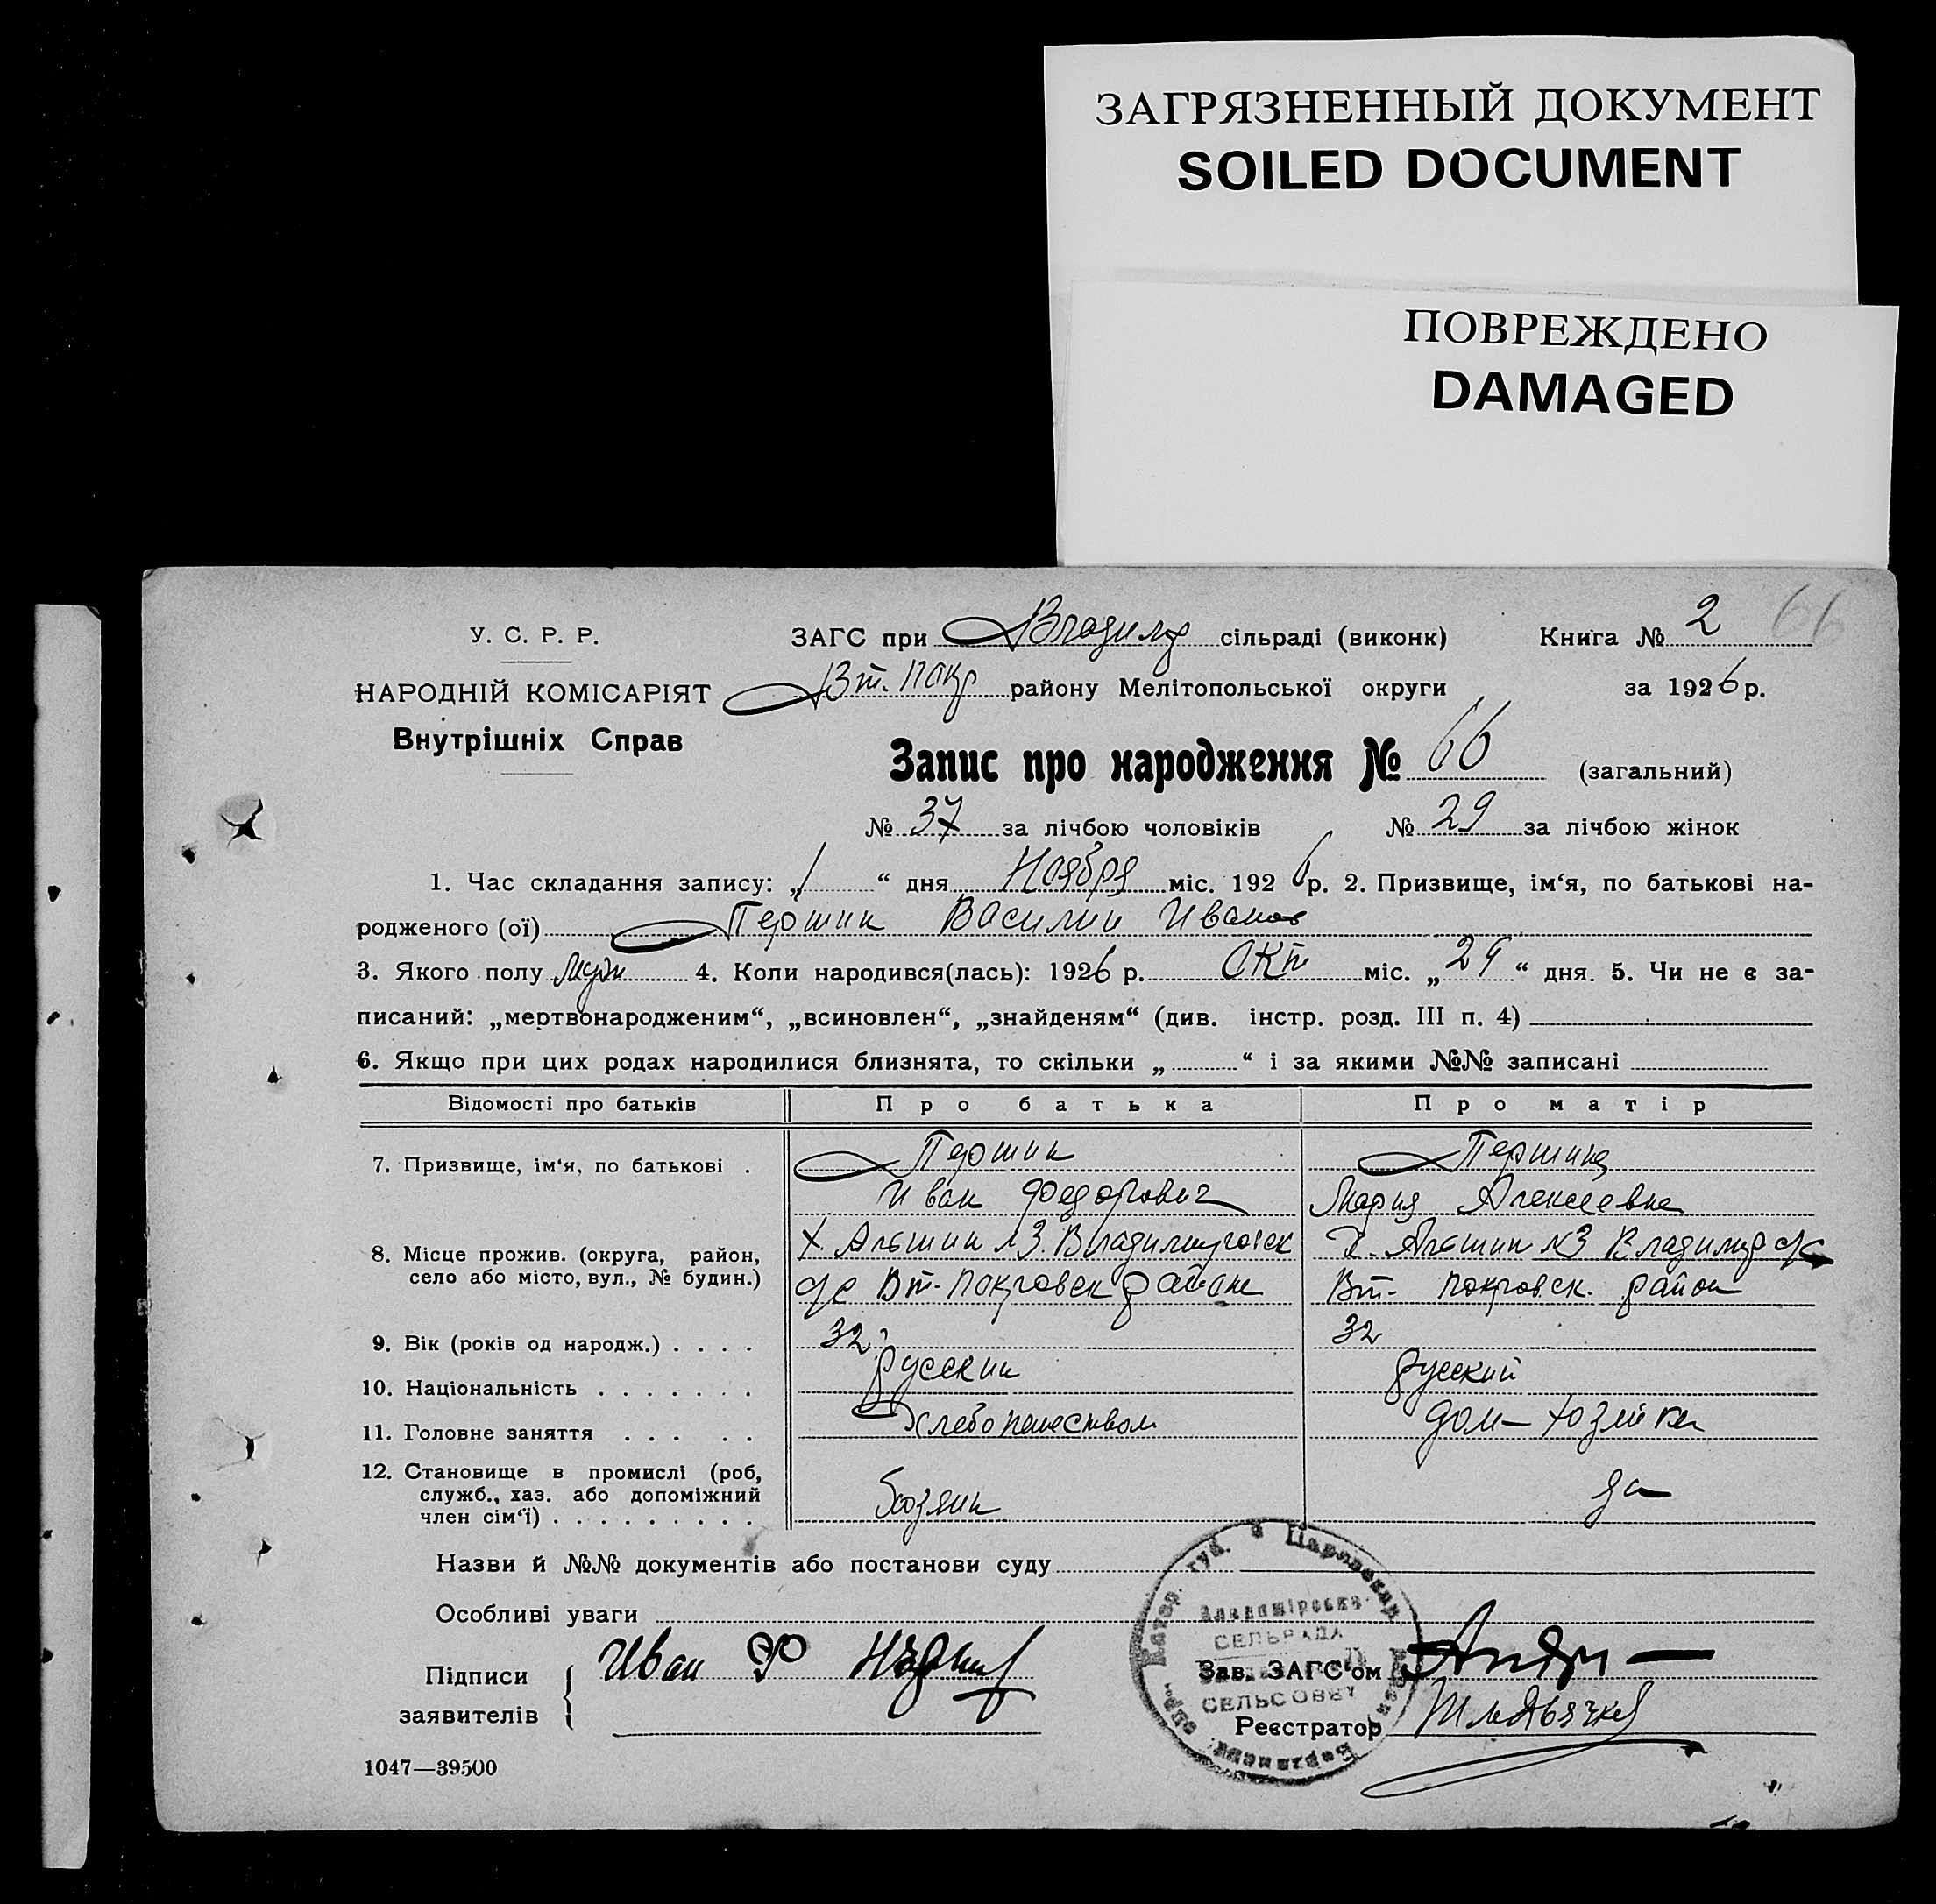 ЗАГРЯЗНЕННЫЙ ДОКУМЕНТ
SOILED DOCUMENT
ПОВРЕЖДЕНО
DAMAGED
У. С. Р. Р.
НАРОДНІЙ КОМІСАРІЯТ
Внутрішніх Справ
ЗАГС при Владимр сільраді (виконк)
Книга № 2 66
Вт. Покр району Мелітопольської округи
за 1926 р.
Запис про народження № 66 (загальний)
№ 37 за лічбою чоловіків № 29 за лічбою жінок
1. Час складання запису: „1“ дня Ноября міс. 1926 р. 2. Призвище, ім‘я, по батькові на-
родженого (ої) Першин Василий Иванов
3. Якого полу Муж 4. Коли народився(лась): 1926 р. Окт міс. „29“ дня. 5. Чи не є за-
писаний: „мертвонародженим“, „всиновлен“, „знайденям“ (див. інстр. розд. III п. 4)
6. Якщо при цих родах народилися близнята, то скільки „ “ і за якими №№ записані
Відомості про батьків Про батька Про матір
7. Призвище, ім‘я, по батькові . Першин Першина
Иван Федорович Мария Алексеевна
8. Місце прожив. (округа, район, село або місто, вул., № будин.) х. Алешин №3. Владимировск х. Алешин №3 Владимр с/с
с/с Вт-Покровск районе Вт- Покровск. район
9. Вік (років од народж.) . . . . 32 32
10. Національність . . . . . . . русский русский
11. Головне заняття . . . . . Хлебопашеством дом-хозяйка
12. Становище в промислі (роб, служб., хаз. або допоміжний член сім‘ї) . . . . . . . . . Хозяин да
Назви й №№ документів або постанови суду
Особливі уваги
Підписи заявителів Иван Ф
СЕЛЬРАДА
СЕЛЬСОВЕТ
Зав. ЗАГС‘ом
Реєстратор
1047—39500